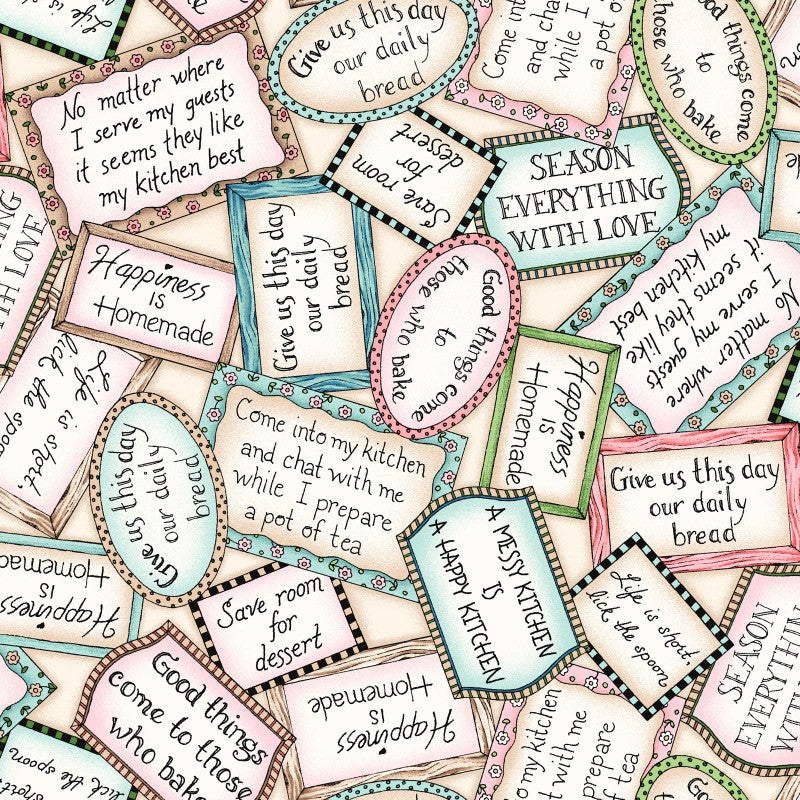 Life is short,
Give us this day
our daily
bread
Come into
and chat
while I
a pot of
Good things come
to
those who bake
No matter where
I serve my guests
it seems they like
my kitchen best
Save room
for
dessert
SEASON
EVERYTHING
WITH LOVE
WITH LOVE
Happiness
is
Homemade
Give us this day
our daily
bread
Good things come
to
those who bake
No matter where
I serve my guests
it seems they like
my kitchen best
Life is short,
lick the spoon
Happiness
is
Homemade
Come into my kitchen
and chat with me
while I prepare
a pot of tea
Give us this day
our daily
bread
Give us this day
our daily
bread
A MESSY KITCHEN
IS
A HAPPY KITCHEN
Happiness
is
Homemade
Save room
for
dessert
Life is short,
lick the spoon
SEASON
EVERYTHIN
WITH
Good things
come to those
who bake
Happiness
is
Homemade
kitchen
with me
prepare
of tea
short,
lick the spoon
Good things